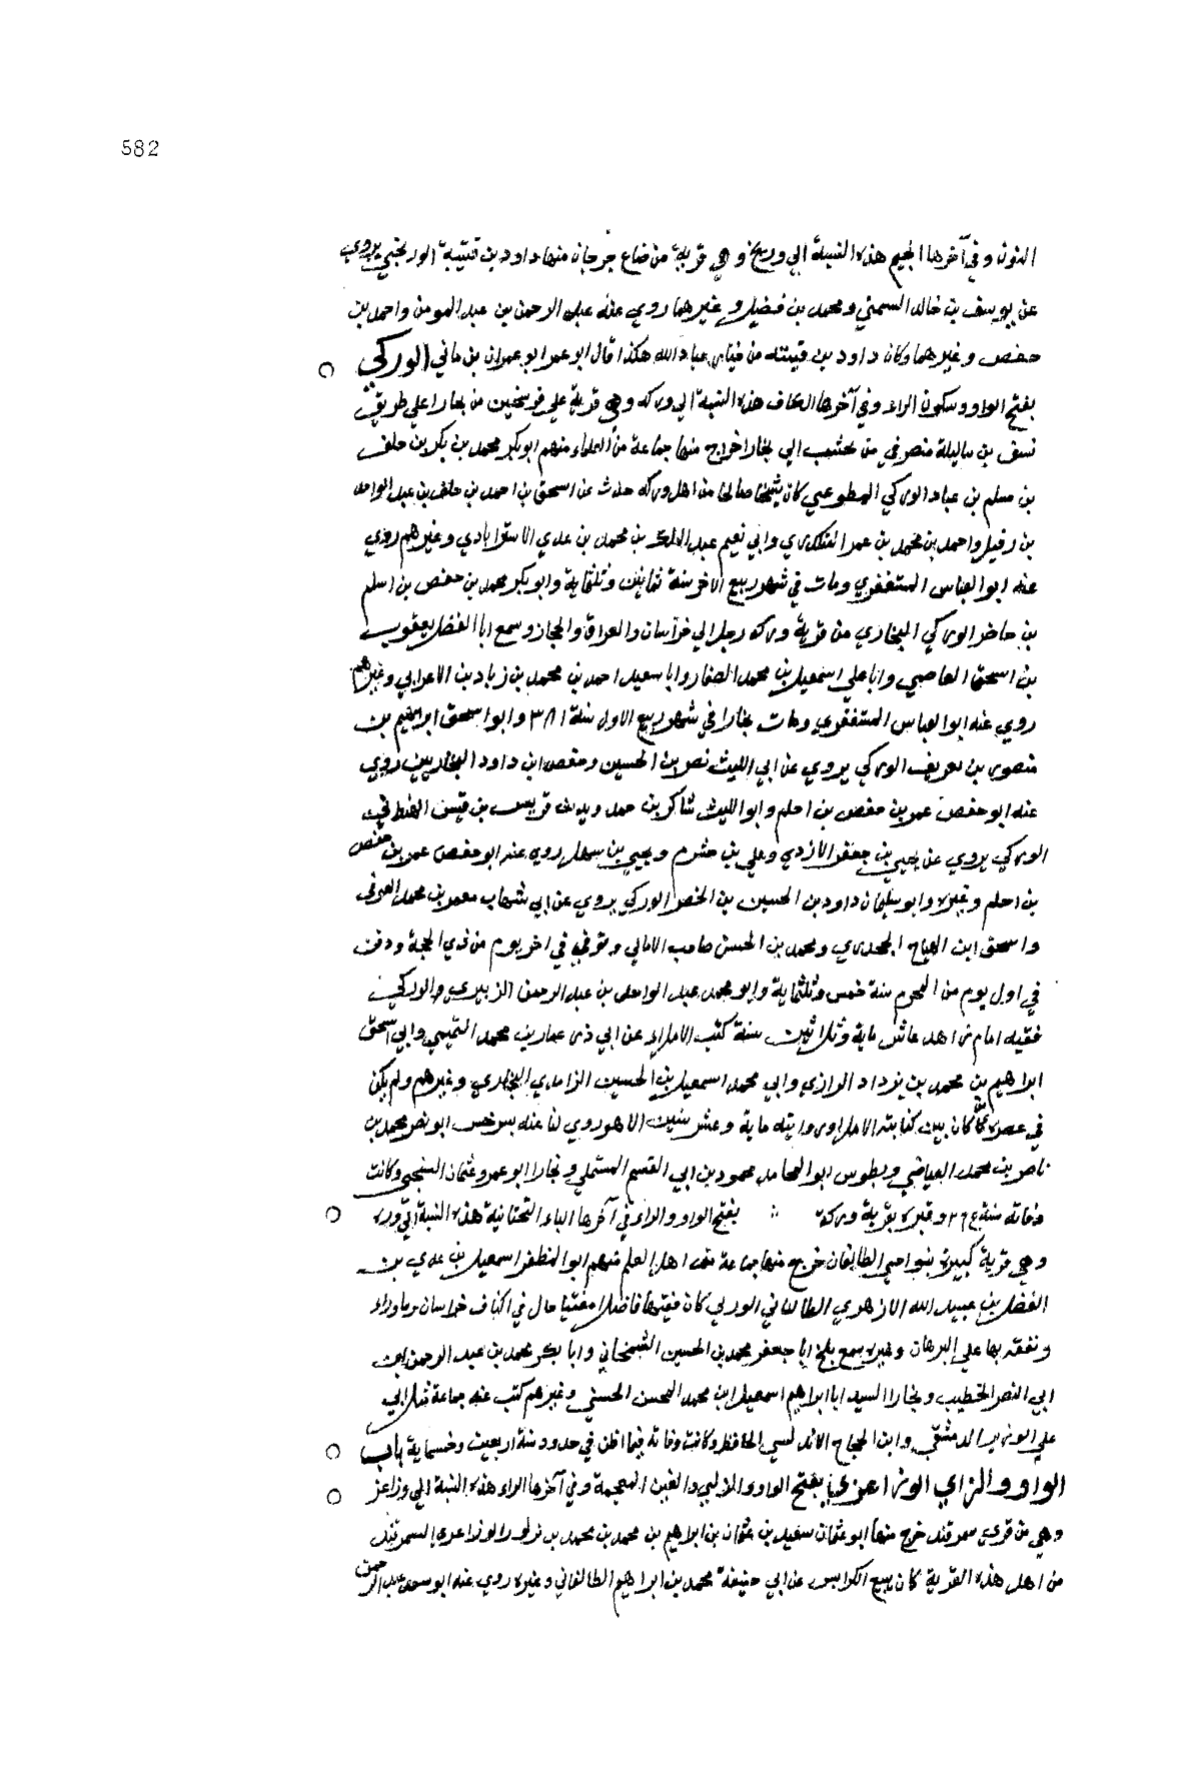 582
النون وفي آخرها الجيم هذه النسبة الي وريخ وهي قرية من ضاع جرجان منها داود بن قتيبة الوريخي يروي
عن يوسف بن خالد السمتي ومحمد بن فضيل وغيرهما روي عنه عبد الرحمن بن عبد المومن واحمد بن
حفص وغيرهما وكان داود بن قتيبة من خيار عباد الله هكذا قال ابو عمر ابو عمران بن ماني الوركي
بفتح الواو وسكون الراء وفي آخرها الكاف هذه النسبة الي وركه وهي قرية علي فرسخين من بخارا علي طريق
نسف بن ساليلة منصرفي من نخشب الي بخارا خرج منها جماعة من العلماء منهم ابو بكر محمد بن بكر بن خلف
بن مسلم بن عباد الوركي المطوعي كان شيخا صالحا من اهل وركه حدث عن اسحق بن احمد بن خلف بن عبد الواحد
بن رفيل واحمد بن محمد بن عمر المنكدري وابي نعيم عبد الملك بن محمد بن عدي الاستراباذي وغيرهم روي
عنه ابو العباس المستغفري ومات في شهر ربيع الاخر سنة ثمانين وثلثماية وابو بكر محمد بن حفص بن اسلم
بن حاضر الوركي البخاري من قرية وركه رحل الي خراسان والعراق والحجاز وسمع ابا الفضل يعقوب
بن اسحق العاصمي وابا علي اسمعيل بن محمد الصفار وابا سعيد احمد بن محمد بن زياد بن الاعرابي وغيرهم
روي عنه ابو العباس المستغفري ومات بخارا في شهر ربيع الاول سنة ٣٨١ وابو اسحق ابرهيم بن
منصور بن عريف الوركي يروي عن ابي الليث نصر بن الحسين وحفص ابن داود البخاريين روي
عنه ابو حفص عمر بن حفص بن احلم وابو الليث شاكر بن حمدويه بن قريب بن قيس
الوركي يروي عن يحيي بن جعفر الازدي وعلي بن خشرم ويحيي بن سهل روي عنه ابو حفص عمر بن حفص
بن احلم وغيره وابو سليمان داود بن الحسين بن الخضر الوركي يروي عن ابي شهاب معمر بن محمد العوفي
واسحق ابن الهياج ومحمد بن الحسن صاحب الامالي وتوفي في اخر يوم من ذي الحجة ودفن
في اول يوم من المحرم سنة خمس وثلثماية وابو محمد عبد الواحد بن عبد الرحمن الزبيري والوركي
فقيه امام زاهد عاش ماية وثلاثين سنة كتب الاملاء عن ابي ذر عمار بن محمد التميمي وابي اسحق
ابراهيم بن محمد بن يزداد الرازي وابي محمد اسمعيل بن الحسين الزاهدي البخاري وغيرهم ولم يكن
في عصره كان بين كتابته الاملاء وروايته ماية وعشر سنين الا هو روي لنا عنه بسرخس ابو نصر محمد بن
ناصر بن محمد العياضي وبطوس ابو المحامد محمود بن ابي القسم المستملي وبخارا ابو عمرو عثمان السنجي وكانت
وفاته سنة وقبره بقرية وركه بفتح الواو والراء في آخرها الياء التحتانية هذه النسبة الي وره
وهي قرية كبيرة بنواحي الطالقان خرج منها جماعة من اهل العلم منهم ابو المظفر اسمعيل بن عدي بن
الفضل بن عبيد الله الازهري الطالقاني الوري كان فقيها فاضلا مفتيا جال في اكناف خراسان وماوراء
وتفقه بها علي البرهان وغيره سمع ببلخ ابا جعفر محمد بن الحسين السمنجاني وابا بكر محمد بن عبد الرحمن بن
ابي النصر الخطيب وبخارا السيد ابا ابراهيم اسمعيل ابن محمد المحسن الحسني وغيرهم كتب عنه جماعة مثل ابي
علي الوزير الدمشقي وابن الحجاج الاندلسي الحافظ وكانت وفاته فيما اظن في حدود سنة اربعين وخمسماية باب
الواو والزاي الوزاغري بفتح الواو والزاي والغين المعجمة وفي آخرها الراء هذه النسبة الي وزاغر
وهي من قري سمرقند خرج منها ابو عثمان سعيد بن عثمان بن ابراهيم بن محمد بن محمد بن الوزاغري السمرقندي
من اهل هذه القرية كان يبيع الكرابيس عن ابي حنيفة محمد بن ابراهيم الطالقاني وغيره روي عنه ابو سعد عبد الرحمن